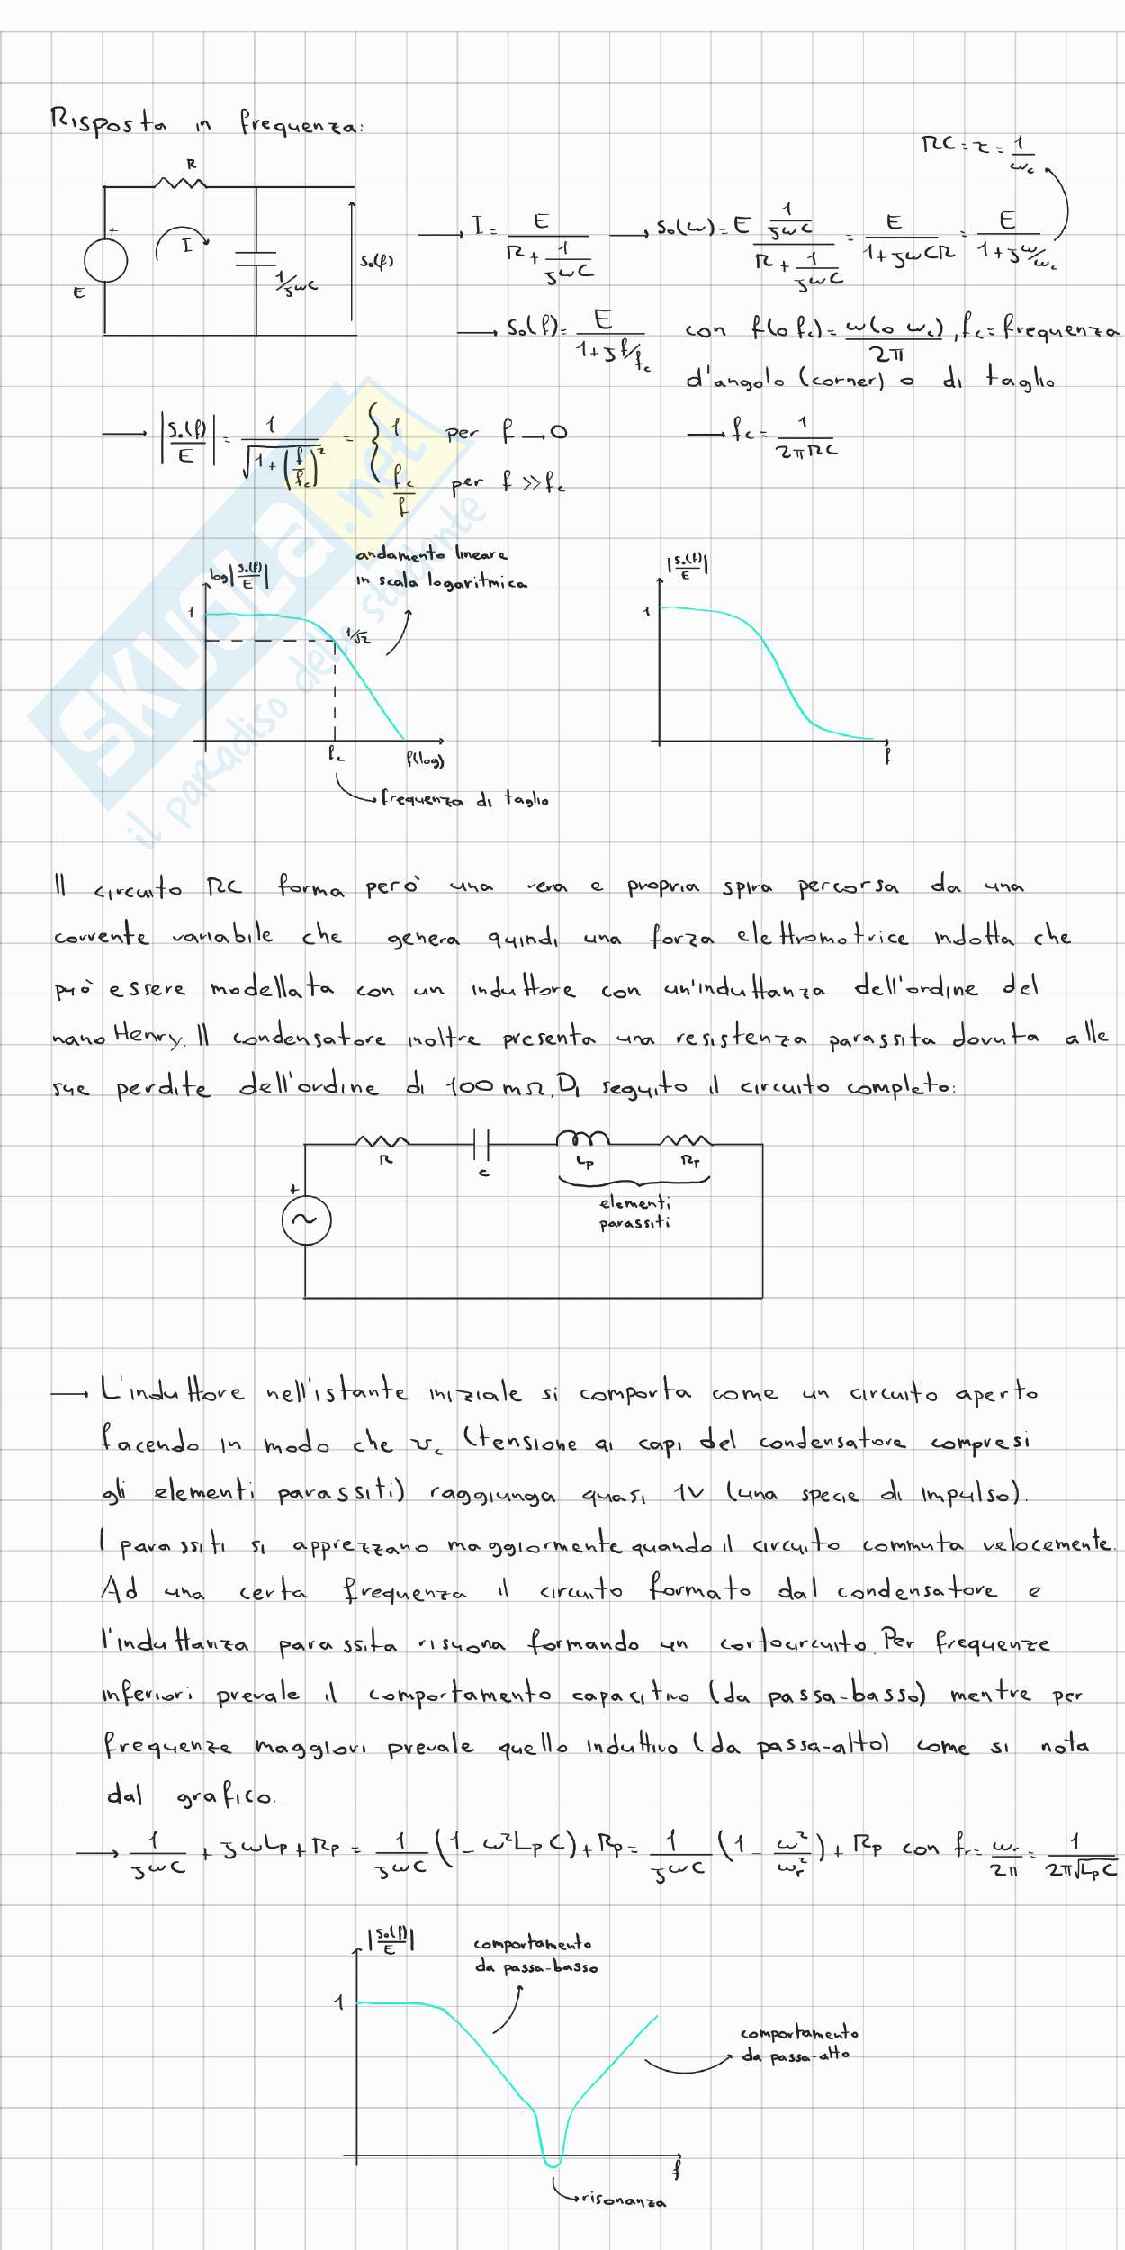 Risposta in frequenza:
RC = τ = 1/ωc
R
I
E
1/jωC
So(f)
→ I = E/(R + 1/jωC) → So(ω) = E (1/jωC)/(R + 1/jωC) = E/(1+jωCR) = E/(1+jω/ωc)
→ So(f) = E/(1+jf/fc) con f(o fc) = ω(o ωc)/2π, fc = frequenza
d'angolo (corner) o di taglio
→ |So(f)/E| = 1/√(1+(f/fc)²) = { 1 per f → 0
fc/f per f >> fc
→ fc = 1/2πRC
andamento lineare
in scala logaritmica
log|So(f)/E|
1
1/√2
fc
f(log)
frequenza di taglio
|So(f)/E|
1
f
SKUOLA.net
il paradiso dello studente
Il circuito RC forma però una vera e propria spira percorsa da una
corrente variabile che genera quindi una forza elettromotrice indotta che
può essere modellata con un induttore con un'induttanza dell'ordine del
nano Henry. Il condensatore inoltre presenta una resistenza parassita dovuta alle
sue perdite dell'ordine di 100 mΩ. Di seguito il circuito completo:
R
C
Lp
Rp
+
elementi
parassiti
→ L'induttore nell'istante iniziale si comporta come un circuito aperto
facendo in modo che vc (tensione ai capi del condensatore compresi
gli elementi parassiti) raggiunga quasi 1V (una specie di impulso).
I parassiti si apprezzano maggiormente quando il circuito commuta velocemente.
Ad una certa frequenza il circuito formato dal condensatore e
l'induttanza parassita risuona formando un cortocircuito. Per frequenze
inferiori prevale il comportamento capacitivo (da passa-basso) mentre per
frequenze maggiori prevale quello induttivo (da passa-alto) come si nota
dal grafico.
→ 1/jωC + jωLp + Rp = 1/jωC (1 - ω²LpC) + Rp = 1/jωC (1 - ω²/ωr²) + Rp con fr = ωr/2π = 1/2π√LpC
|So(f)/E|
comportamento
da passa-basso
1
comportamento
da passa-alto
f
risonanza